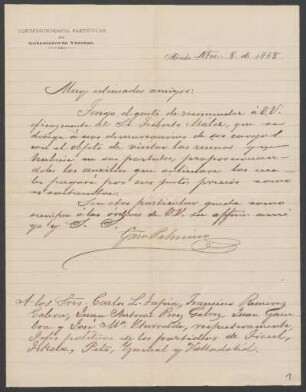 CORRESPONDENCIA PARTICULAR
DEL
Gobernador de Yucatán.
Mérida, Nbre. 8. de 1888
Muy estimados amigos:
Tengo el gusto de recomendar á V.V.
eficazmente al Sr. Teoberto Maler, que se
dirige á esas demarcaciones de su cargo, á
con el objeto de visitar las ruinas que
hubiere en sus partidos, proporcionan-
doles los auxilios que solicitare los cua-
les pagará por sus justos precios como
es costumbre.
Sin otro particular quedo como
siempre á las órdenes de V.V. su affmo. ami-
go y S. S.
Gmo. Palomino
A los Sres. Carlos L. Tapia, Francisco Ramirez
Calera, Juan Antonio Pérez Gálvez, Juan Gam-
boa y José Ma. Iturralde, respectivamente,
Jefes políticos de los partidos de Ticul,
Peto, y Valladolid